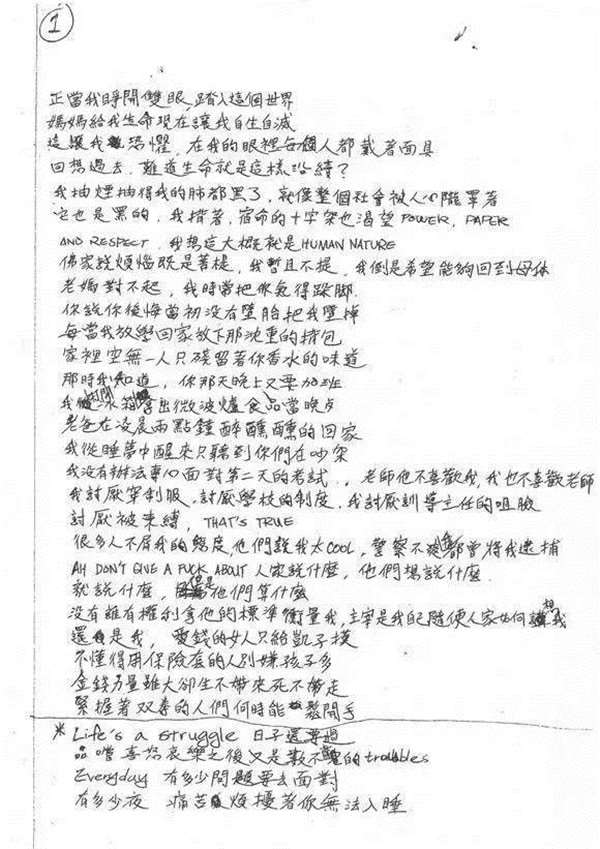 1
正當我睜開雙眼,踏入這個世界
媽媽給我生命現在讓我自生自滅
這讓我恐懼,在我的眼裡每個人都戴著面具
回想過去,難道生命就是這樣沿續?
我抽煙抽得我的肺都黑了,就像整個社會被人心籠罩著
它也是黑的,我揹著,宿命的十字架也渴望POWER,PAPER
AND RESPECT,我想這大概就是HUMAN NATURE
佛家說煩惱既是菩提,我暫且不提,我倒是希望能夠回到母体
老媽對不起,我時常把你氣得跺腳
你說你後悔當初没有墮胎把我墮掉
每當我放學回家放下那沈重的揹包
家裡空無一人只殘留著你香水的味道
那時我知道,你那天晚上又要加班
我打開冰箱拿出微波爐食品當晚点
老爸在凌晨兩點鐘醉醺醺的回家
我從睡夢中醒來只聽到你們在吵架
我没有辦法專心面對第二天的考試,,老師他不喜歡我,我也不喜歡老師
我討厭穿制服,討厭學校的制度,我討厭訓導主任的咀臉
討厭被束縛,THAT'S TRUE
很多人不屑我的態度,他們說我太COOL,警察不爽也都曾將我逮捕
AH DON'T GIVE A FUCK ABOUT 人家說什麼,他們想說什麼
就說什麼,但是他們算什麼
没有誰有權利拿他的標準衡量我,主宰是我自己隨便人家如何想我
還是我,要錢的女人只給凱子摸
不懂得用保險套的人別嫌孩子多
金錢力量雖大卻生不帶來死不帶走
緊握著双拳的人們何時能鬆開手
* Life's a struggle 日子還要過
品嚐喜怒哀樂之後又是數不盡的troubles
Everyday 有多少問題要去面對
有多少夜 痛苦煩擾著你無法入睡